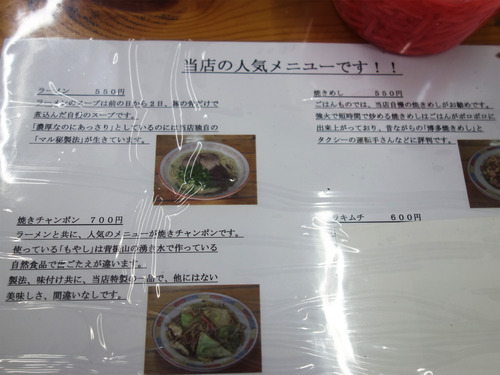 当店の人気メニューです！！
ラーメン　　　５５０円
ラーメンのスープは前の日から２日、豚の骨だけで
煮込んだ自慢のスープです。
「濃厚なのにあっさり」としているのには当店独自の
「マル秘製法」が生きています。
焼きめし　　　５５０円
ごはんものでは、当店自慢の焼きめしがお勧めです。
強火で短時間で炒める焼きめしはごはんがポロポロに
出来上がっており、昔ながらの「博多焼きめし」と
タクシーの運転手さんなどに評判です。
焼きチャンポン　７００円
ラーメンと共に、人気のメニューが焼きチャンポンです。
使っている「もやし」は背振山の湧き水で作っている
自然食品で出ごたえが違います。
製法、味付け共に、当店特製の一品で、他にはない
美味しさ、間違いなしです。
ラキムチ　　６００円